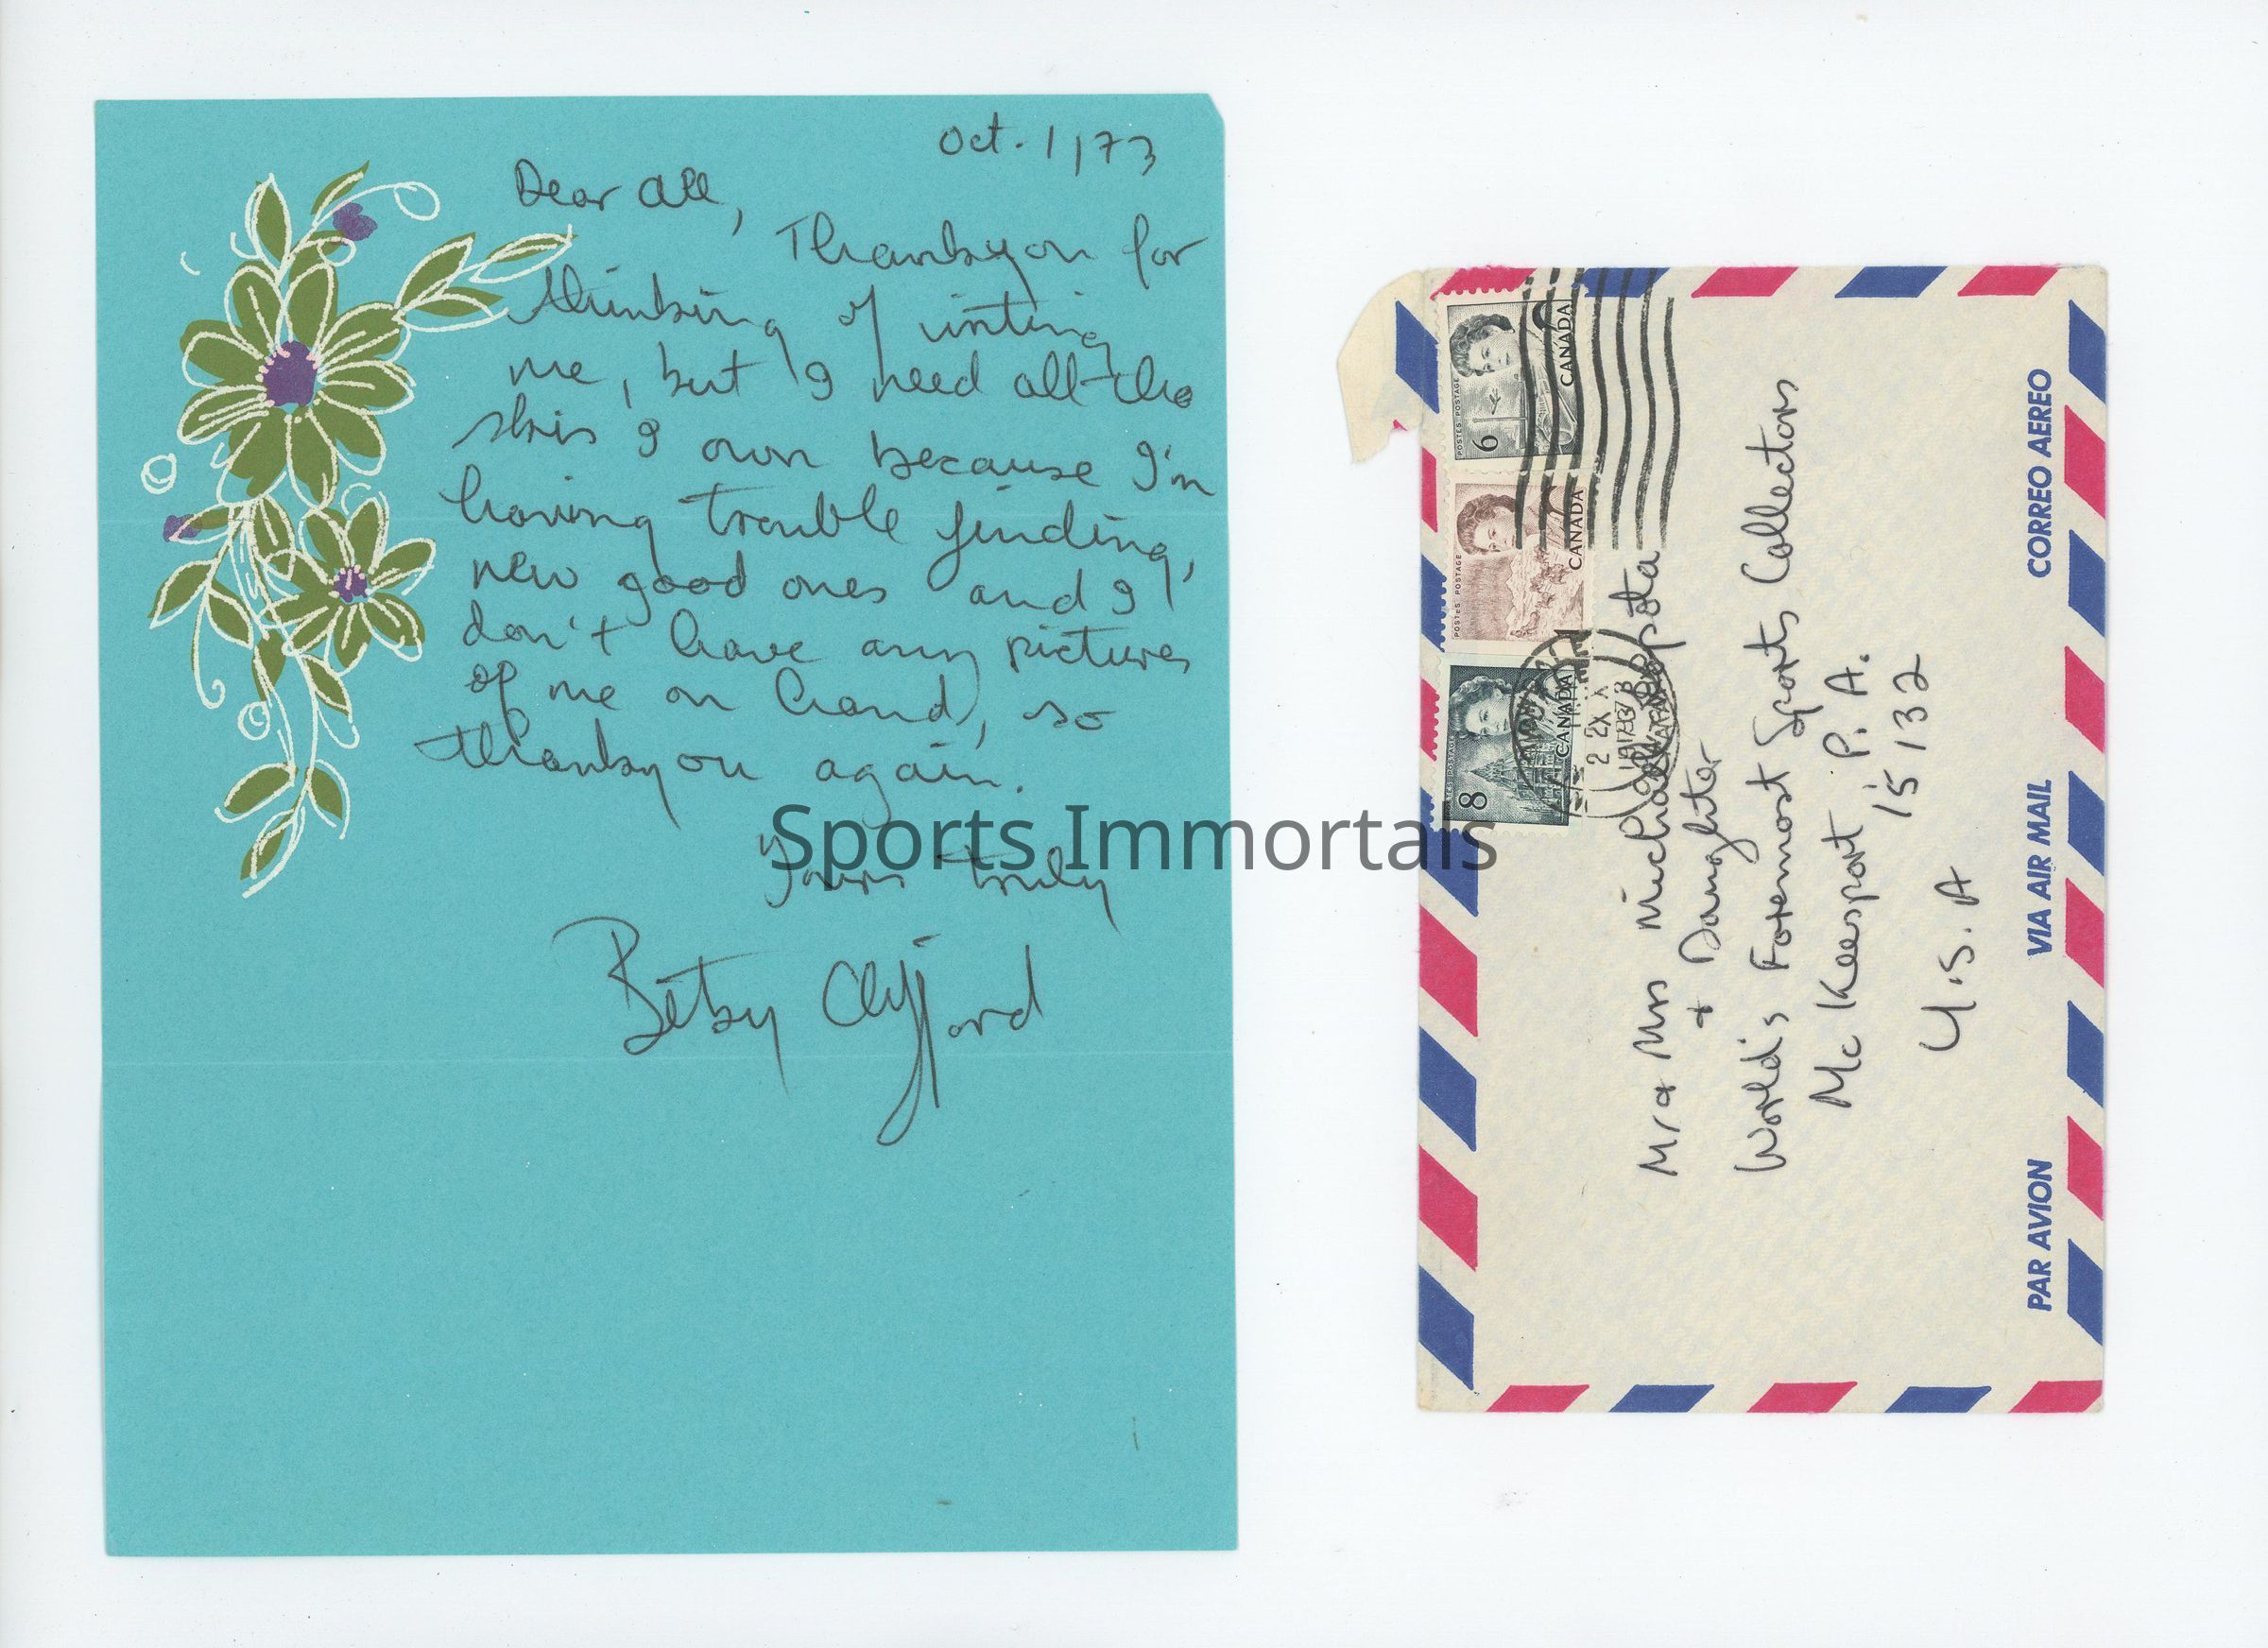 Oct. 1/73
Dear All,
Thankyou for
thinking of writing
me, but I need all the
skis I own because I'm
having trouble finding,
new good ones and I
don't have any pictures
of me on hand, so
thankyou again.
Yours truly
Betsy Clifford
Sports Immortals
POSTES POSTAGE
6
CANADA
POSTES POSTAGE
CANADA
POSTES POSTAGE
8
CANADA
2 X
Mr & Mrs Michael
& Daughter
World's Foremost Sports Collectors
Mc Keesport P. A.
15132
U.S.A
PAR AVION VIA AIR MAIL CORREO AEREO